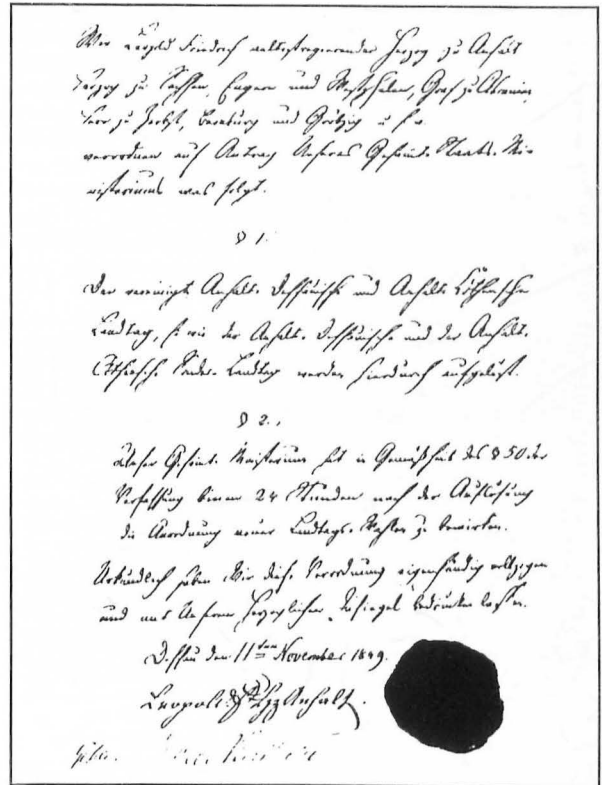 Wir Leopold Friedrich ältestregierender Herzog zu Anhalt
Herzog zu Sachsen, Engern und Westphalen, Graf zu Askanien,
Herr zu Zerbst, Bernburg und Gröbzig u. s. w.
verordnen auf Antrag Unseres Gesammt-Staats-Mi-
nisteriums was folgt.
§ 1.
Der vereinigte Anhalt-Dessauische und Anhalt-Cöthensche
Landtag, so wie der Anhalt-Dessauische und der Anhalt-
Cöthensche Sonder-Landtag werden hierdurch aufgelöst.
§ 2.
Unser Gesammt-Ministerium hat in Gemäßheit des § 50 der
Verfassung binnen 24 Stunden nach der Auflösung
die Anordnung neuer Landtags-Wahlen zu bewirken.
Urkundlich haben Wir diese Verordnung eigenhändig vollzogen
und mit Unserem Herzoglichen Insiegel bedrucken lassen.
Dessau den 11ten November 1849.
Leopold Fr. Hzg Anhalt.